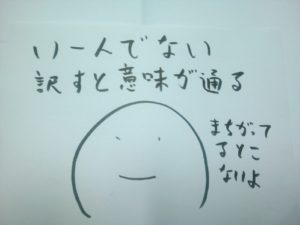 い一人でない
訳すと意味が通る
まちがって
るとこ
ないよ